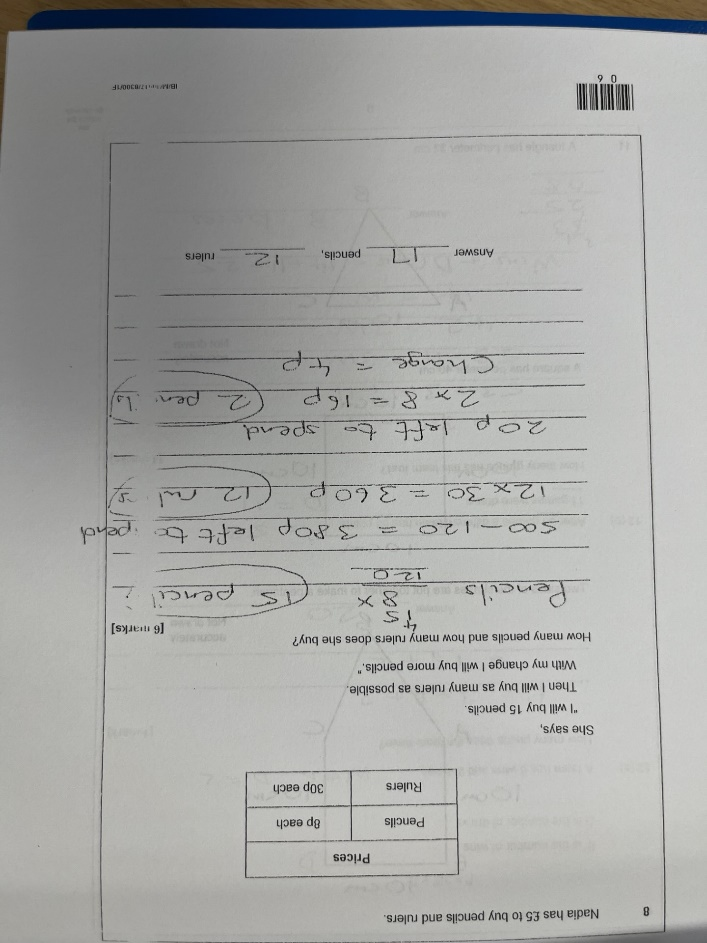 8 Nadia has £5 to buy pencils and rulers.
Prices
Pencils 8p each
Rulers 30p each
She says,
"I will buy 15 pencils.
Then I will buy as many rulers as possible.
With my change I will buy more pencils."
How many pencils and how many rulers does she buy?
[6 marks]
15
Pencils 8 x 15 pencils
4
120
500 - 120 = 380p left to spend
12 x 30 = 360p 12 rulers
20p left to spend
2 x 8 = 16p 2 pencils
Change = 4p
Answer 17 pencils, 12 rulers
0 6